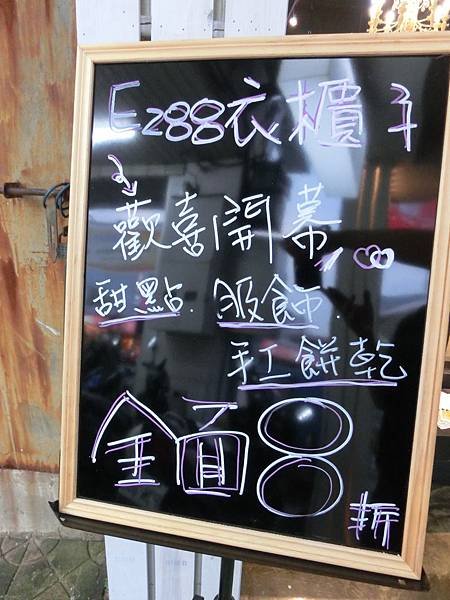 Ezgg衣櫃
歡喜開幕
甜點. 服飾.
手工餅乾
全面8折